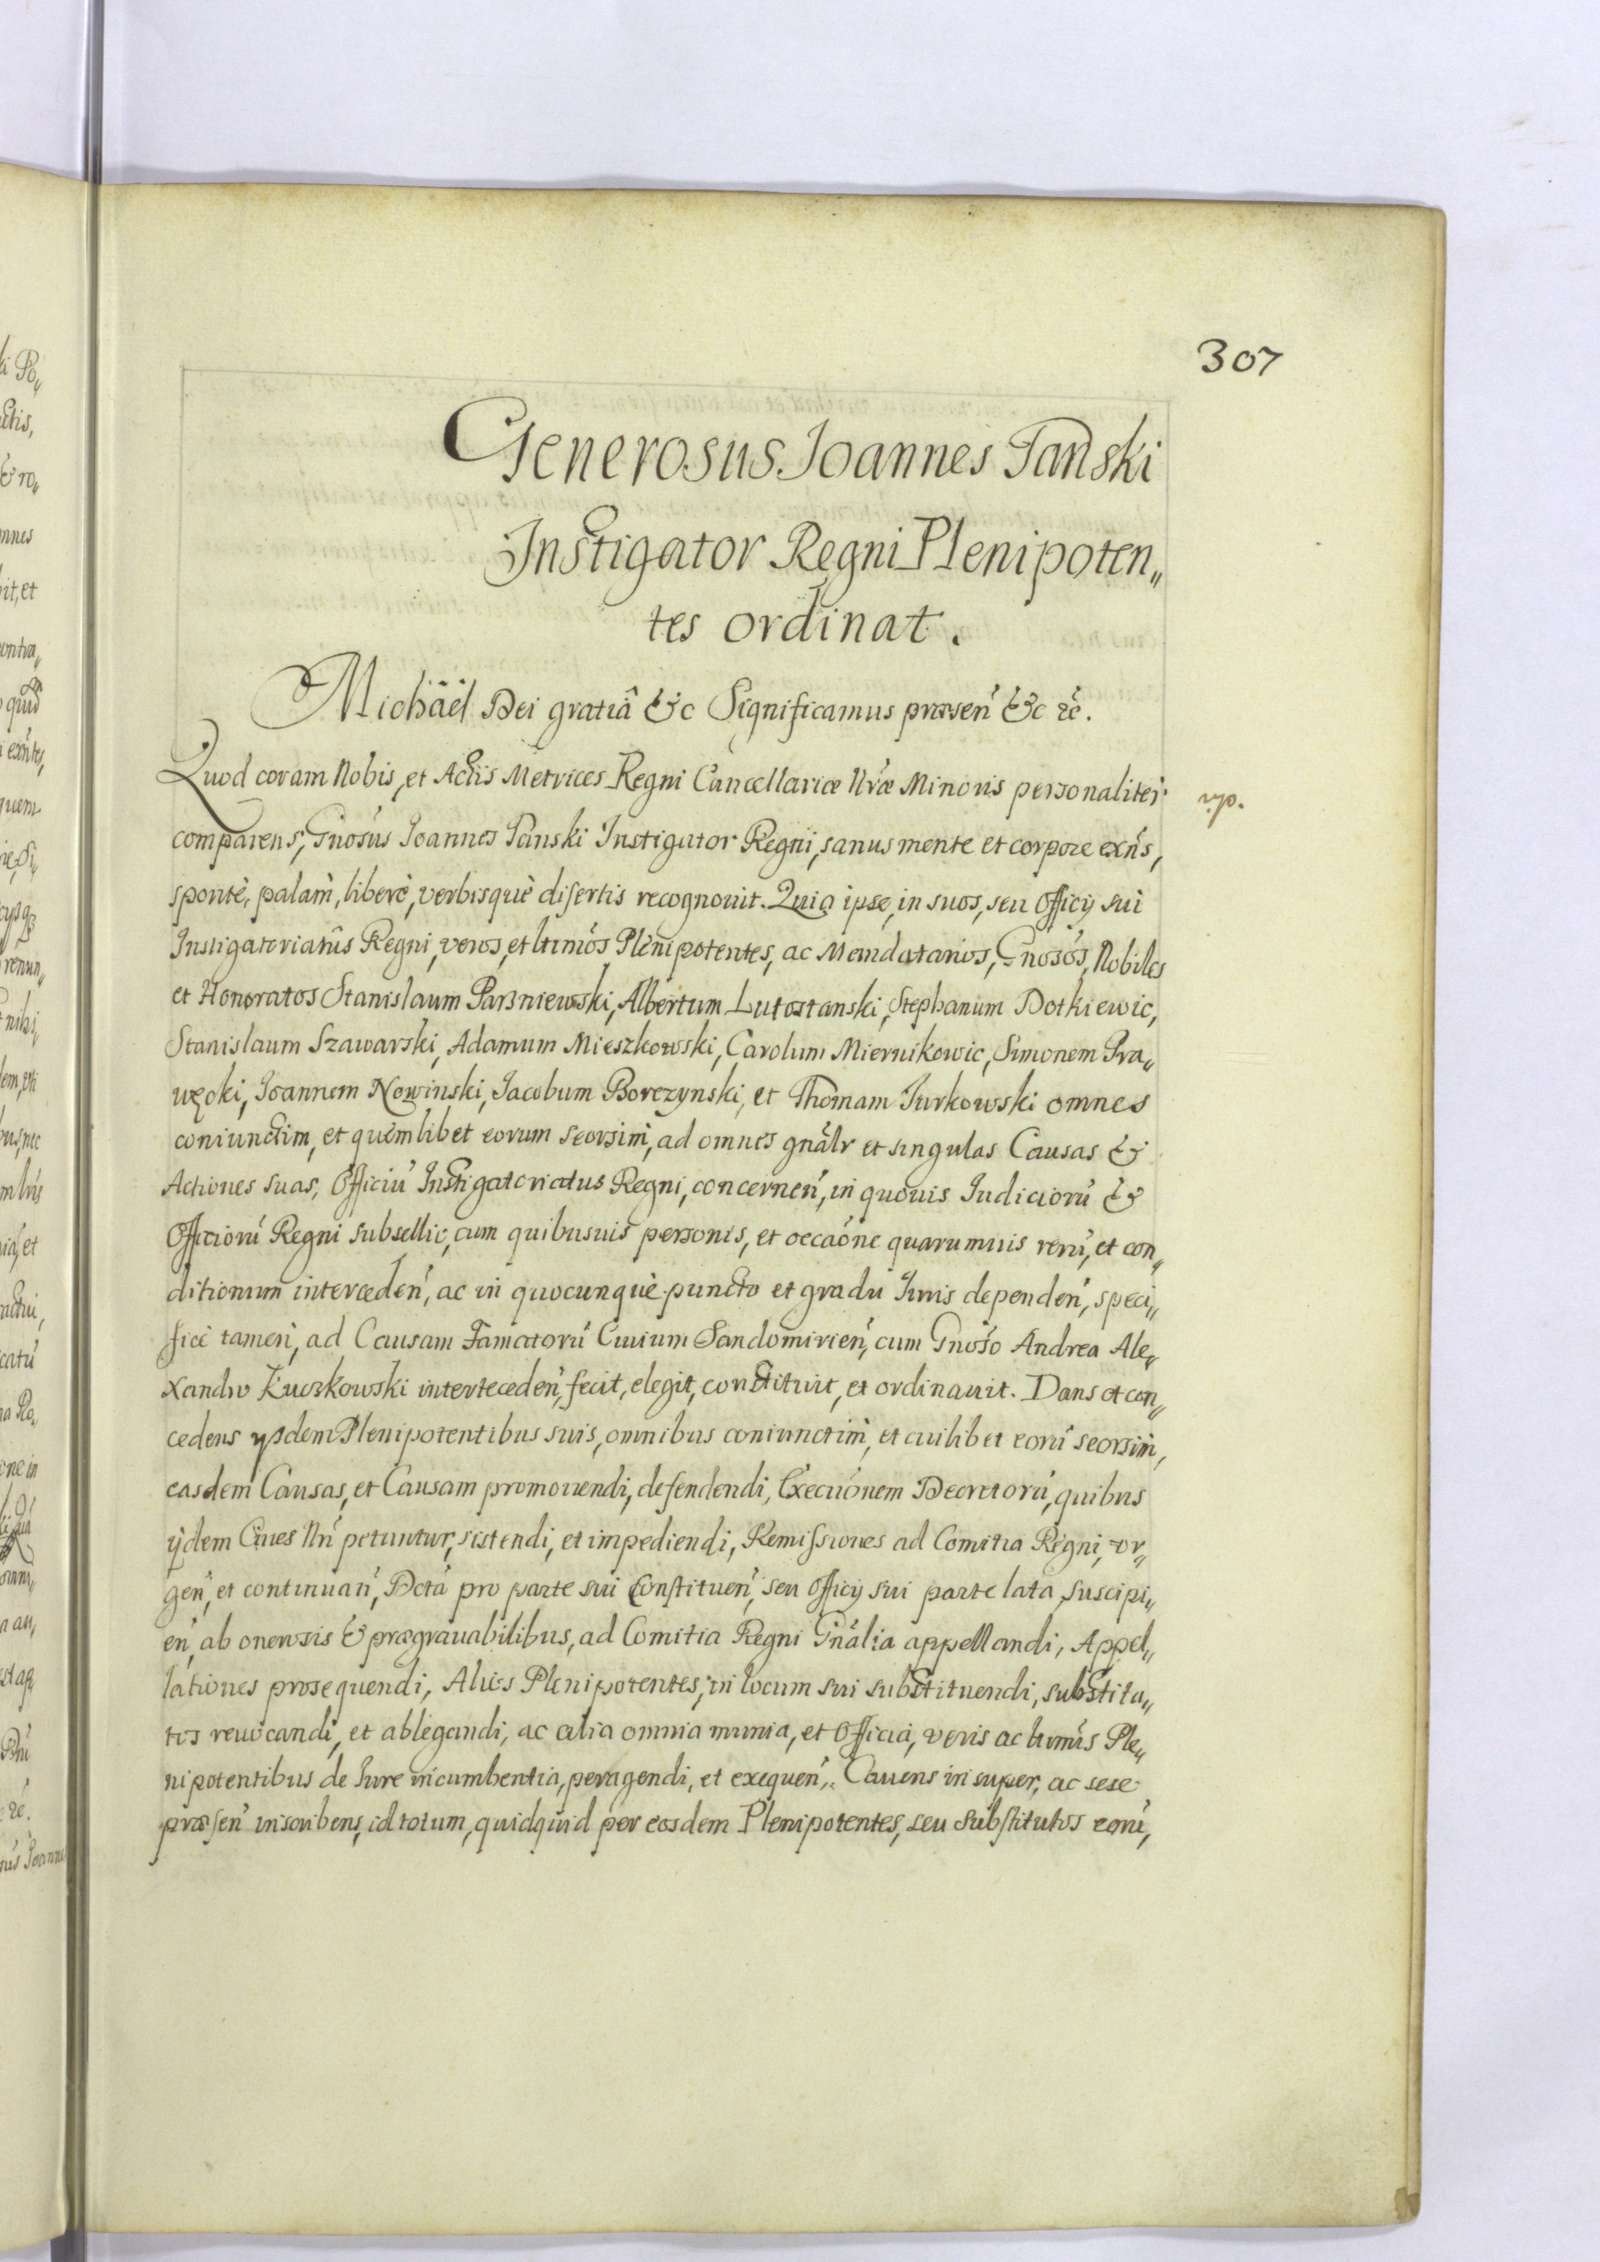 307
Generosus Joannes Tanski
Instigator Regni Plenipoten„
tes ordinat.
Michaël Dei gratiâ &c Significamus præsen̄ &c ꝛc̄.
Quod coram Nobis, et Actis Metrices Regni Cancellariæ Nr̄æ Minoris personaliter
comparens, Gnosus Joannes Tanski Instigator Regni, sanus mente et corpore exn̄s,
spontè, palam̀, liberè, verbisquè disertis recognouit. Quia ipse, in suos, seu Officÿ sui
Instigatoriatûs Regni, veros, et ltimōs Plenipotentes, ac Mandatarios, Gnosōs, Nobiles
et Honoratos Stanislaum Parzniewski, Albertum Lutostanski, Stephanum Dotkiewic,
Stanislaum Szawarski, Adamum Mieszkowski, Carolum Miernikowic, Simonem Pra„
węcki, Joannem Nowinski, Jacobum Borczynski, et Thomam Jurkowski omnes
coniunctim, et quemlibet eorum seorsim̀, ad omnes gnālr et singulas Causas &
Actiones suas, Officiū Instigatoriatus Regni, concernen̄, in quouis Judiciorū &
Officiorū Regni subsellio, cum quibusuis personis, et occaōne quarumuis rerū, et con„
ditionum interceden̄, ac in quocunquè puncto et gradu Juris dependen̄, speci„
ficè tamen̄, ad Causam Famatorū Ciuium Sandomirien̄, cum Gnoso Andrea Ale„
xandro Kuczkowski interteceden̄, fecit, elegit, constituit, et ordinauit. Dans et con„
cedens ysdem Plenipotentibus suis, omnibus coniunctim̀, et cuilibet eorū seorsim̀,
easdem Causas, et Causam promouendi, defendendi, Execuōnem Decretorū, quibus
ÿdem Ciues Nrī petuntur, sistendi, et impediendi, Remissiones ad Comitia Regni, vr„
gen̄, et continuan̄, Dctā pro parte sui Constituen̄, seu Officÿ sui parte lata, suscipi„
en̄, ab onerosis & prægrauabilibus, ad Comitia Regni Gnālia appellandi, Appel„
lationes prosequendi, Alios Plenipotentes, in locum sui substituendi, substitu„
tos reuocandi, et ablegandi, ac alia omnia munia, et Officia, veris ac ltimīs Ple„
nipotentibus de Jure incumbentia, peragendi, et exequen̄. Cauens insuper, ac sese
præsen̄ inscribens, id totum, quidquid per eosdem Plenipotentes, seu Substitutos eorū,